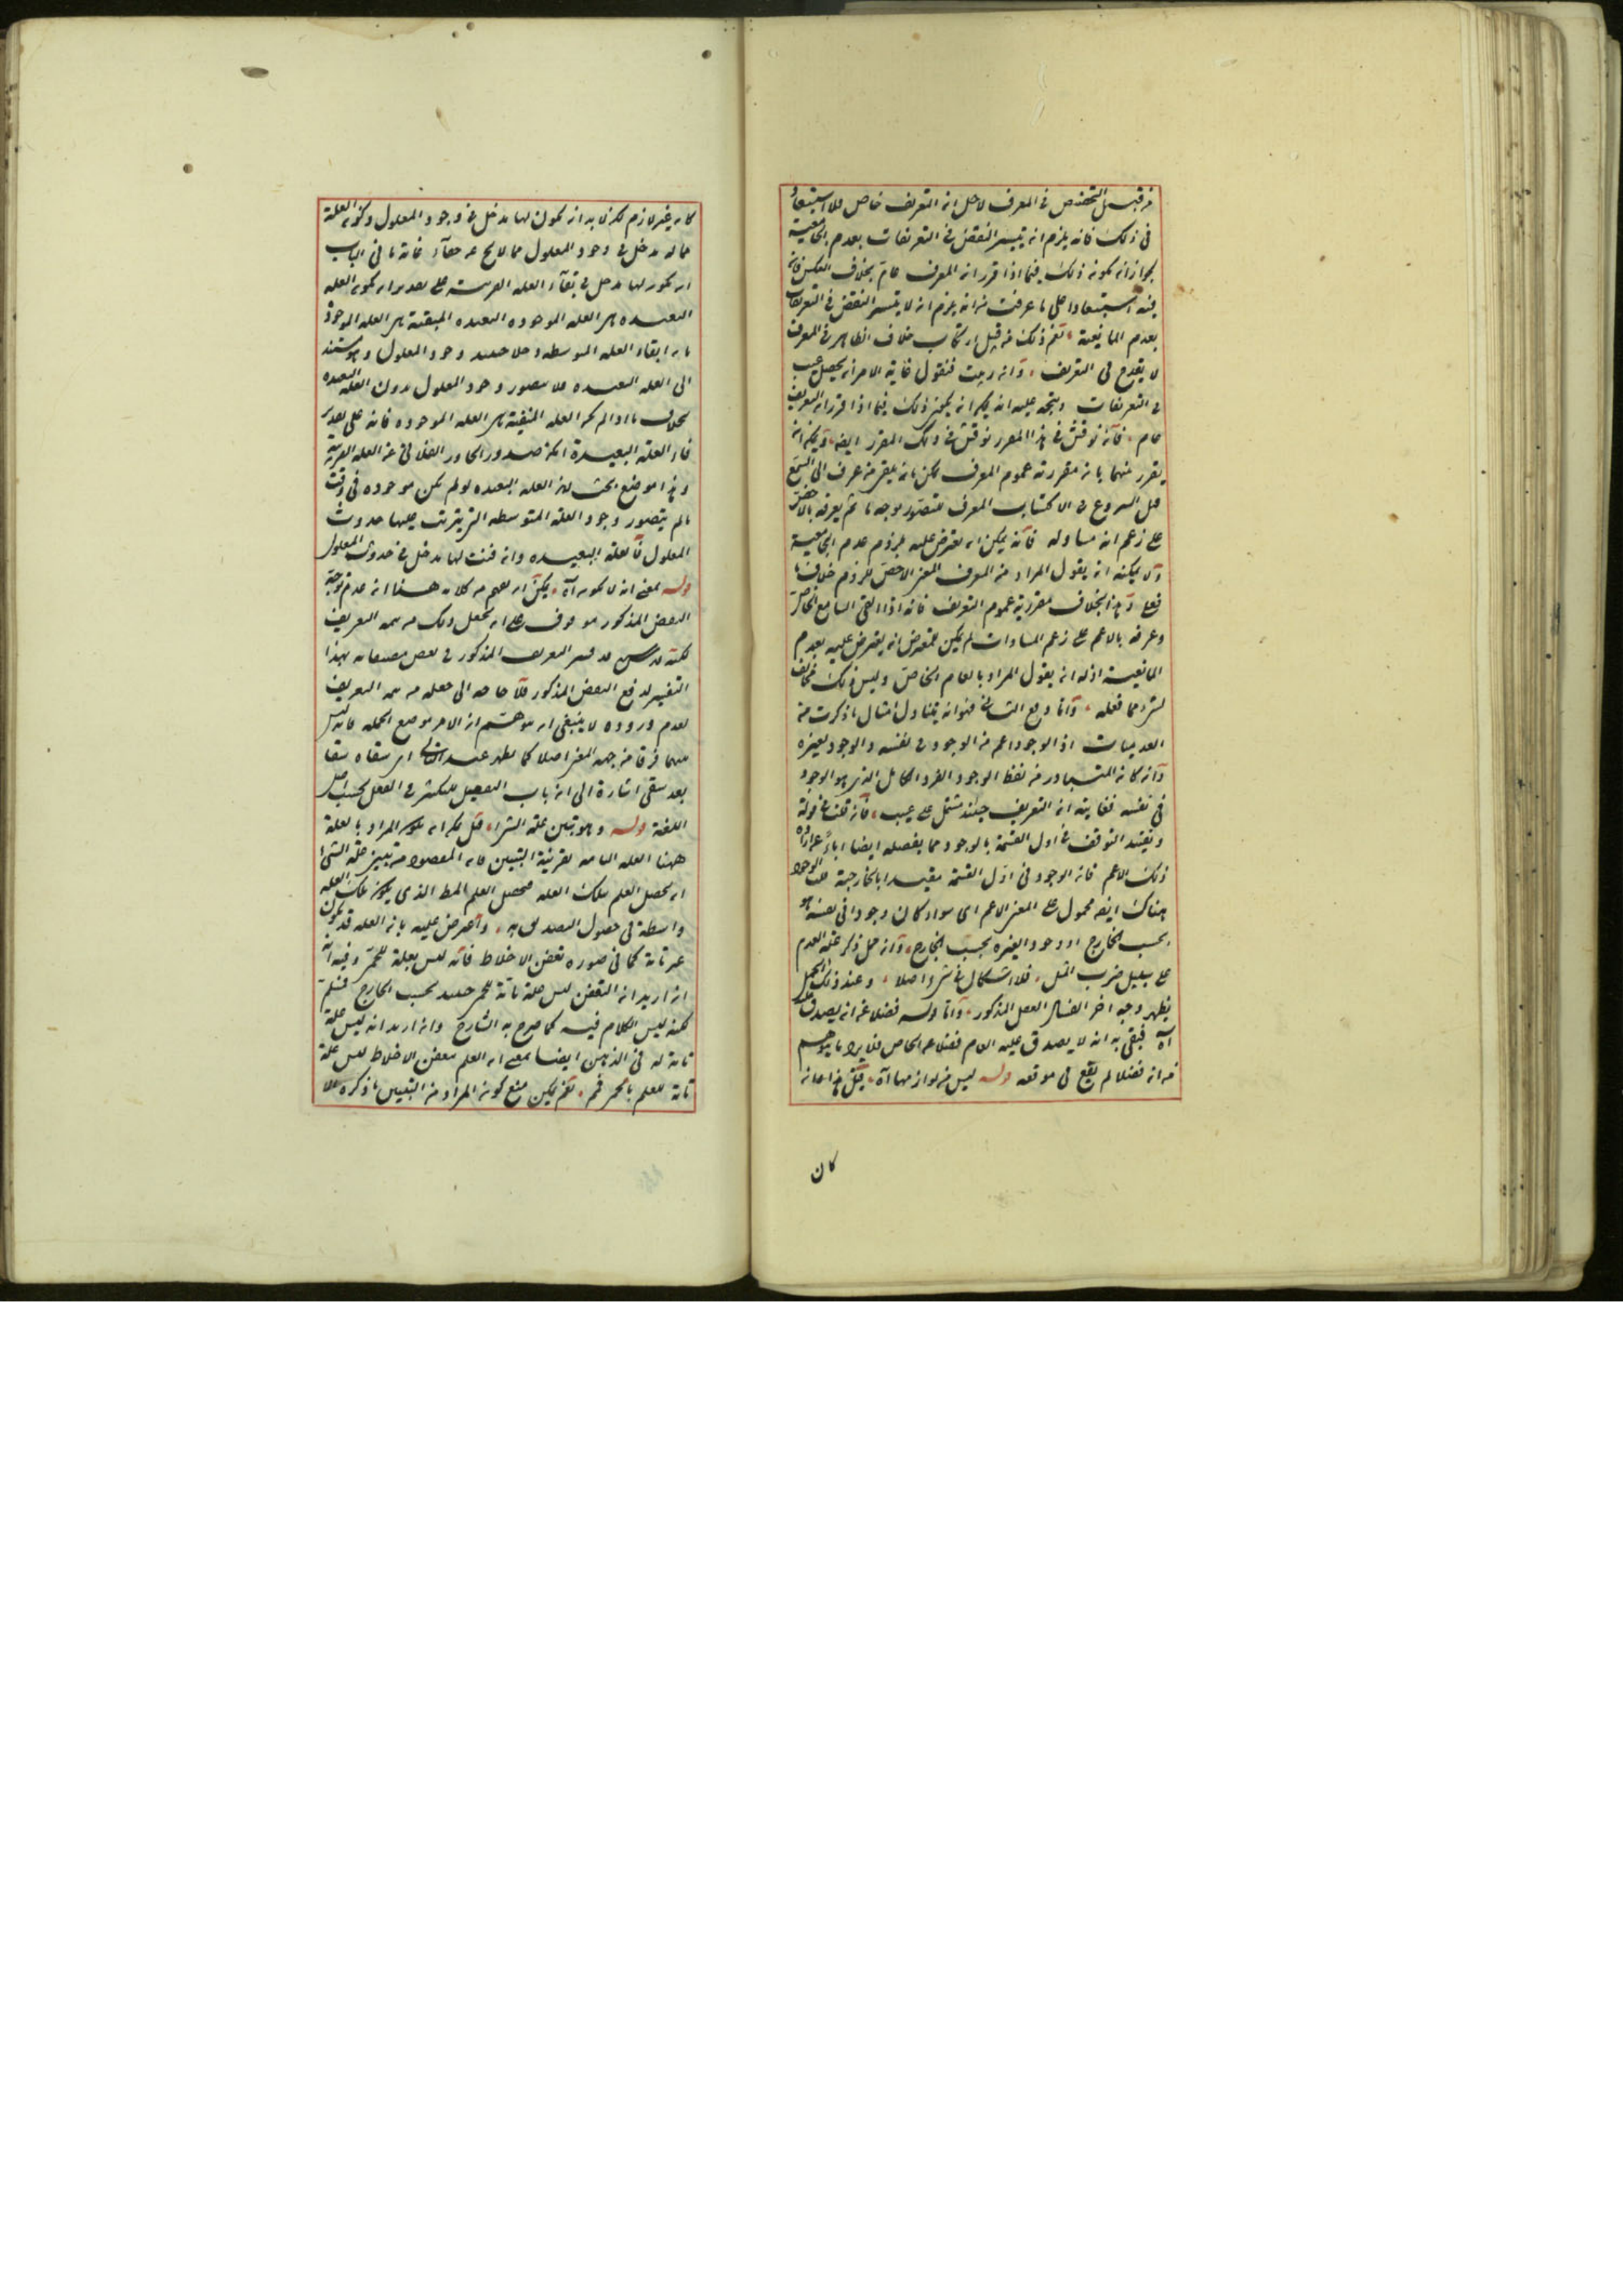 من قبيل التخصيص في المعرف لاجل ان التعريف خاص فلا استبعاد
في ذلك فانه يلزم ان يتيسر النقض في التعريفات بعدم الجامعية
بجواز ان يكون ذلك فيما اذا قرر ان المعرف عام بخلاف العكس فان
فيه استبعادا على ما عرفت من انه يلزم ان لا يتيسر النقض في التعريفات
بعدم المانعية نعم ذلك من قبيل ارتكاب خلاف الظاهر في المعرف
لا يقدح في التعريف وان فنقول غاية الامر ان يحصل عيب
في التعريفات ويتجه عليه انه يمكن ان يكون ذلك فيما اذا قرر ان التعريف
عام فان نوقش في هذا المقرر نوقش في ذلك المقرر ايضا ويمكن ان
يفرق بينهما بان مقررية عموم المعرف يمكن بان من عرف الى السمع
قبل الشروع في الاكتساب المعرف فيتصور بوجه ما ثم يعرفه بالاخص
على زعم انه مساو له فانه يمكن ان يعترض عليه بلزوم عدم الجامعية
ولا يمكنه ان يقول المراد من المعرف المعنى الاخص للزوم خلاف ما
فعل وهذا بخلاف مقررية عموم التعريف فانه اذا القي السامع الخاص
وعرفه بالاعم على زعم المساوات لم يمكن لمعترض ان يعترض عليه بعدم
المانعية اذ له ان يقول المراد بالعام الخاص وليس ذلك مخالف
لشئ مما فعله واما دفع الثاني فهو انه يتناول امثال ما ذكرت من
العدميات اذ الوجود اعم من الوجود في نفسه والوجود لغيره
وان كان المتبادر من لفظ الوجود الفرد الكامل الذي هو الوجود
في نفسه فغايته ان التعريف حينئذ مشتمل على عيب فان قلت قوله
وتقييد التوقف في اول القسمة بالوجود مما يفصله ايضا اباء عن ارادة
ذلك الاعم فان الوجود في اول القسمة مقيد بالخارجية قلت الوجود
هناك ايضا محمول على المعنى الاعم اي سواء كان وجودا في نفسه
بحسب الخارج او وجودا لغيره بحسب الخارج وان حمل ذكر علة العدم
على سبيل ضرب المثل فلا اشكال في شئ اصلا وعند ذلك
يظهر وجه اخر المذكور واما قوله فضلا عن ان يصدق
آه فبقي به انه لا يصدق عليه العام فضلا عن الخاص فلا يرد ما يتوهم
من ان فضلا لم يقع في موقعه قوله ليس من لوازمها آه قيل هذا وان
كان
كان غير لازم لكن لا بد ان يكون لها مدخل في وجود المعلول وكون العلة
مما له مدخل في وجود المعلول مما لا يخ عن خفاء فانه ما في الباب
ان يكون لها مدخل في بقاء العلة القريبة على تقدير ان يكون العلة
البعيدة من العلة الموجودة البعيدة المبقية من العلة الموجودة
بان ابقاء العلة المتوسطة دخلا حينئذ وجود المعلول وهو مستند
الى العلة البعيدة فلا يتصور وجود المعلول بدون العلة البعيدة
بخلاف ما اذا لم يكن العلة المبقية من العلة الموجودة فانه على تقدير
فناء العلة البعيدة امكن صدور عن العلة القريبة
وهذا موضع بحث لان العلة البعيدة لو لم يكن موجودة في وقت
ما لم يتصور وجود العلة المتوسطة التي يترتب عليها حدوث
المعلول فالعلة البعيدة وان فنيت لها مدخل في حدوث المعلول
قوله بمعنى ان لا يكون آه يمكن ان يفهم من كلامه ههنا انه عدم توجه
النقض المذكور موقوف على ان يجعل ذلك من تتمة التعريف
لكنه قد فسر التعريف المذكور في بعض مصنفاته بهذا
التفسير لدفع النقض المذكور فلا حاجة الى جعله من تتمة التعريف
لعدم وروده لا ينبغي ان يتوهم ان الامر موضع الجملة فانه ليس
بينهما فرق من جهة المعنى اصلا كما يظهر
بعد سقى اشارة الى ان باب التفعيل للتكثير في الفعل بحسب اصل
اللغة قوله وهو تبيين علة الشئ قيل يمكن ان يكون المراد بالعلة
ههنا العلة التامة بقرينة التبيين فان المقصود من تبيين علة الشئ
ان يحصل العلم بتلك العلة فيحصل العلم الذي يكون تلك العلة
واسطة في حصول التصديق به واعترض عليه بان العلة قد يكون
غير تامة كما في صورة تعفن الاخلاط فانه ليس بعلة للحمى وفيه انه
ان اريد ان التعفن ليس علة تامة للحمى حينئذ بحسب الخارج فمسلم
لكنه ليس الكلام فيه كما صرح به الشارح وان اريد انه ليس علة
تامة له في الذهن ايضا بمعنى ان العلم بتعفن الاخلاط ليس علة
تامة للعلم بالحمى فمم نعم يمكن منع كون المراد من التبيين ما ذكره الا